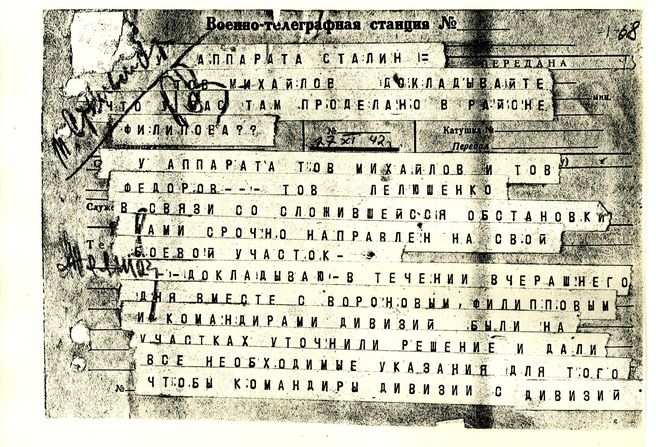 Военно-телеграфная станция №
168
АППАРАТА СТАЛИН =
ПЕРЕДАНА
ТОВ МИХАЙЛОВ ДОКЛАДЫВАЙТЕ
ЧТО У ВАС ТАМ ПРОДЕЛАНО В РАЙОНЕ
мин.
ФИЛИПОВА??
№
27 XI 42
Катушка №
Передал
У АППАРАТА ТОВ МИХАЙЛОВ И ТОВ
ФЕДОРОВ--- ТОВ ЛЕЛЮШЕНКО
Служ
В СВЯЗИ СО СЛОЖИВШЕЙСЯ ОБСТАНОВКИ
НАМИ СРОЧНО НАПРАВЛЕН НА СВОЙ
БОЕВОЙ УЧАСТОК-
-ДОКЛАДЫВАЮ-В ТЕЧЕНИИ ВЧЕРАШНЕГО
ДНЯ ВМЕСТЕ С ВОРОНОВЫМ, ФИЛИППОВЫМ
И КОМАНДИРАМИ ДИВИЗИЙ БЫЛИ НА
УЧАСТКАХ УТОЧНИЛИ РЕШЕНИЕ И ДАЛИ
ВСЕ НЕОБХОДИМЫЕ УКАЗАНИЯ ДЛЯ ТОГО
№
ЧТОБЫ КОМАНДИРЫ ДИВИЗИИ С ДИВИЗИЙ